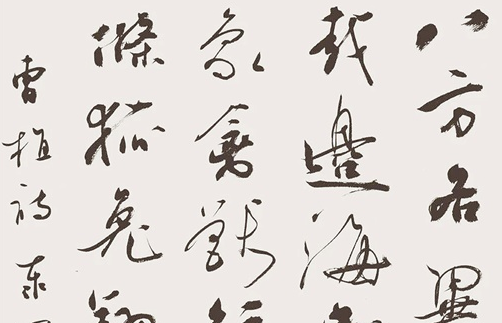 八方各異
哉邊海
象禽獸
條狐兔翔
曹植詩泰